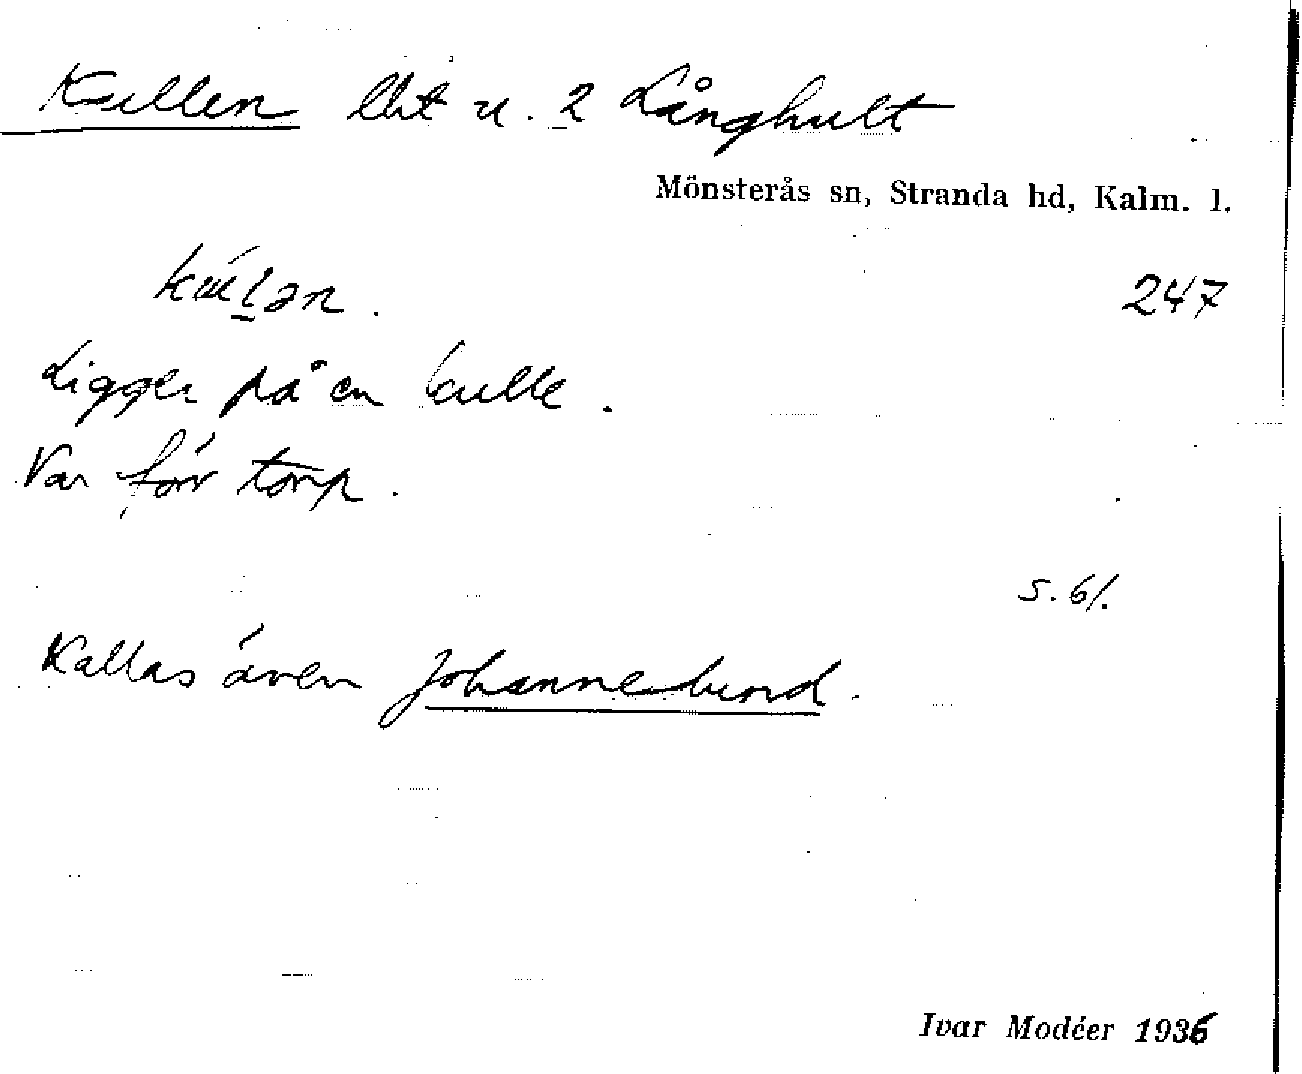 Kullen lht u. 2 Långhult
Mönsterås sn, Stranda hd, Kalm. l.
247
Ligger på en kulle.
Var förr torp.
s. 61.
Kallas även Johanneslund.
Ivar Modéer 1936